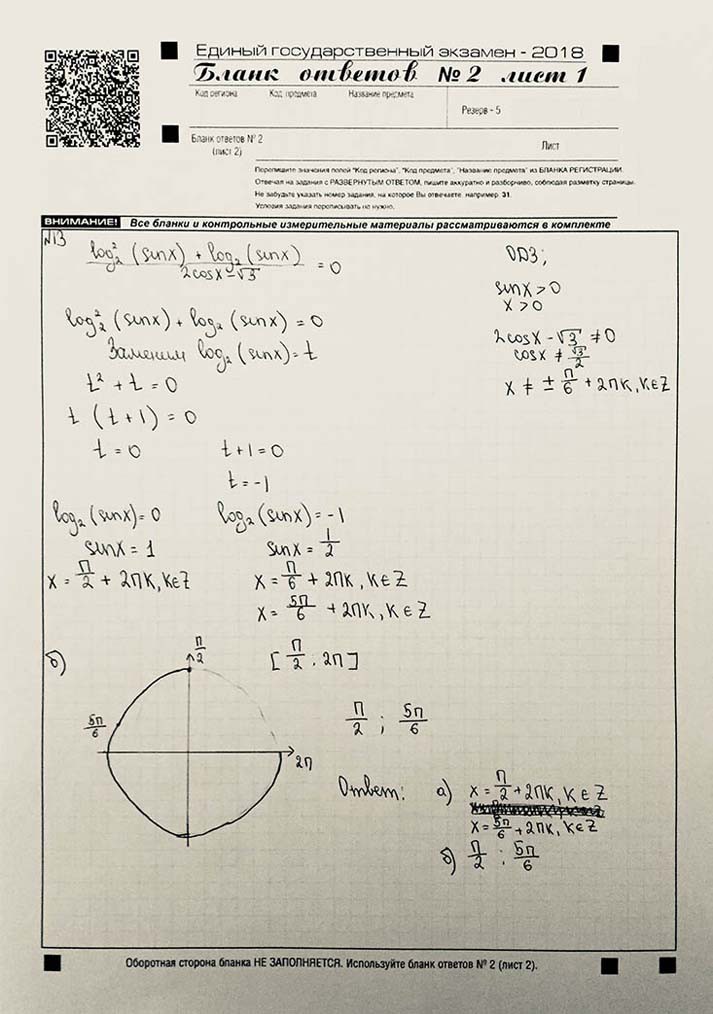 Единый государственный экзамен - 2018
Бланк ответов № 2 лист 1
Код региона Код предмета Название предмета
Резерв - 5
Бланк ответов № 2
(лист 2)
Лист
Перепишите значения полей "Код региона", "Код предмета", "Название предмета" из БЛАНКА РЕГИСТРАЦИИ.
Отвечая на задания с РАЗВЕРНУТЫМ ОТВЕТОМ, пишите аккуратно и разборчиво, соблюдая разметку страницы.
Не забудьте указать номер задания, на которое Вы отвечаете, например, 31.
Условия задания переписывать не нужно.
ВНИМАНИЕ! Все бланки и контрольные измерительные материалы рассматриваются в комплекте
№13
log₂² (sinx) + log₂ (sinx)
2cosx - √3
= 0
ОДЗ;
sinx > 0
x > 0
2cosx - √3 ≠ 0
cosx ≠ √3/2
x ≠ ± П/6 + 2ПК, К∈Z
log₂² (sinx) + log₂ (sinx) = 0
Заменим log₂ (sinx) = t
t² + t = 0
t (t + 1) = 0
t = 0 t + 1 = 0
t = -1
log₂ (sinx) = 0 log₂ (sinx) = -1
sinx = 1 sinx = 1/2
x = П/2 + 2ПК, К∈Z x = П/6 + 2ПК, К∈Z
x = 5П/6 + 2ПК, К∈Z
б)
П/2
5П/6
2П
[П/2 ; 2П]
П/2 ; 5П/6
Ответ: а) x = П/2 + 2ПК, К∈Z
x = 5П/6 + 2ПК, К∈Z
б) П/2 ; 5П/6
Оборотная сторона бланка НЕ ЗАПОЛНЯЕТСЯ. Используйте бланк ответов № 2 (лист 2).